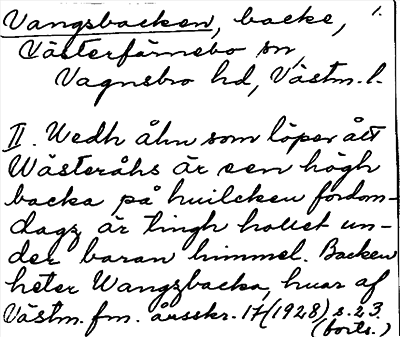 Vangsbacken, backe, 1.
Västerfärnebo sn,
Vagnsbro hd, Västm. l.
II. Wedh åhn som löper ått
Wästeråhs är een högh
backa på huilcken fordom-
dagz är tingh hollet un-
der baran himmel. Backen
heter Wangzbacka, huar af
Västm. fm. årsskr. 17 (1928) s. 23
(forts.)